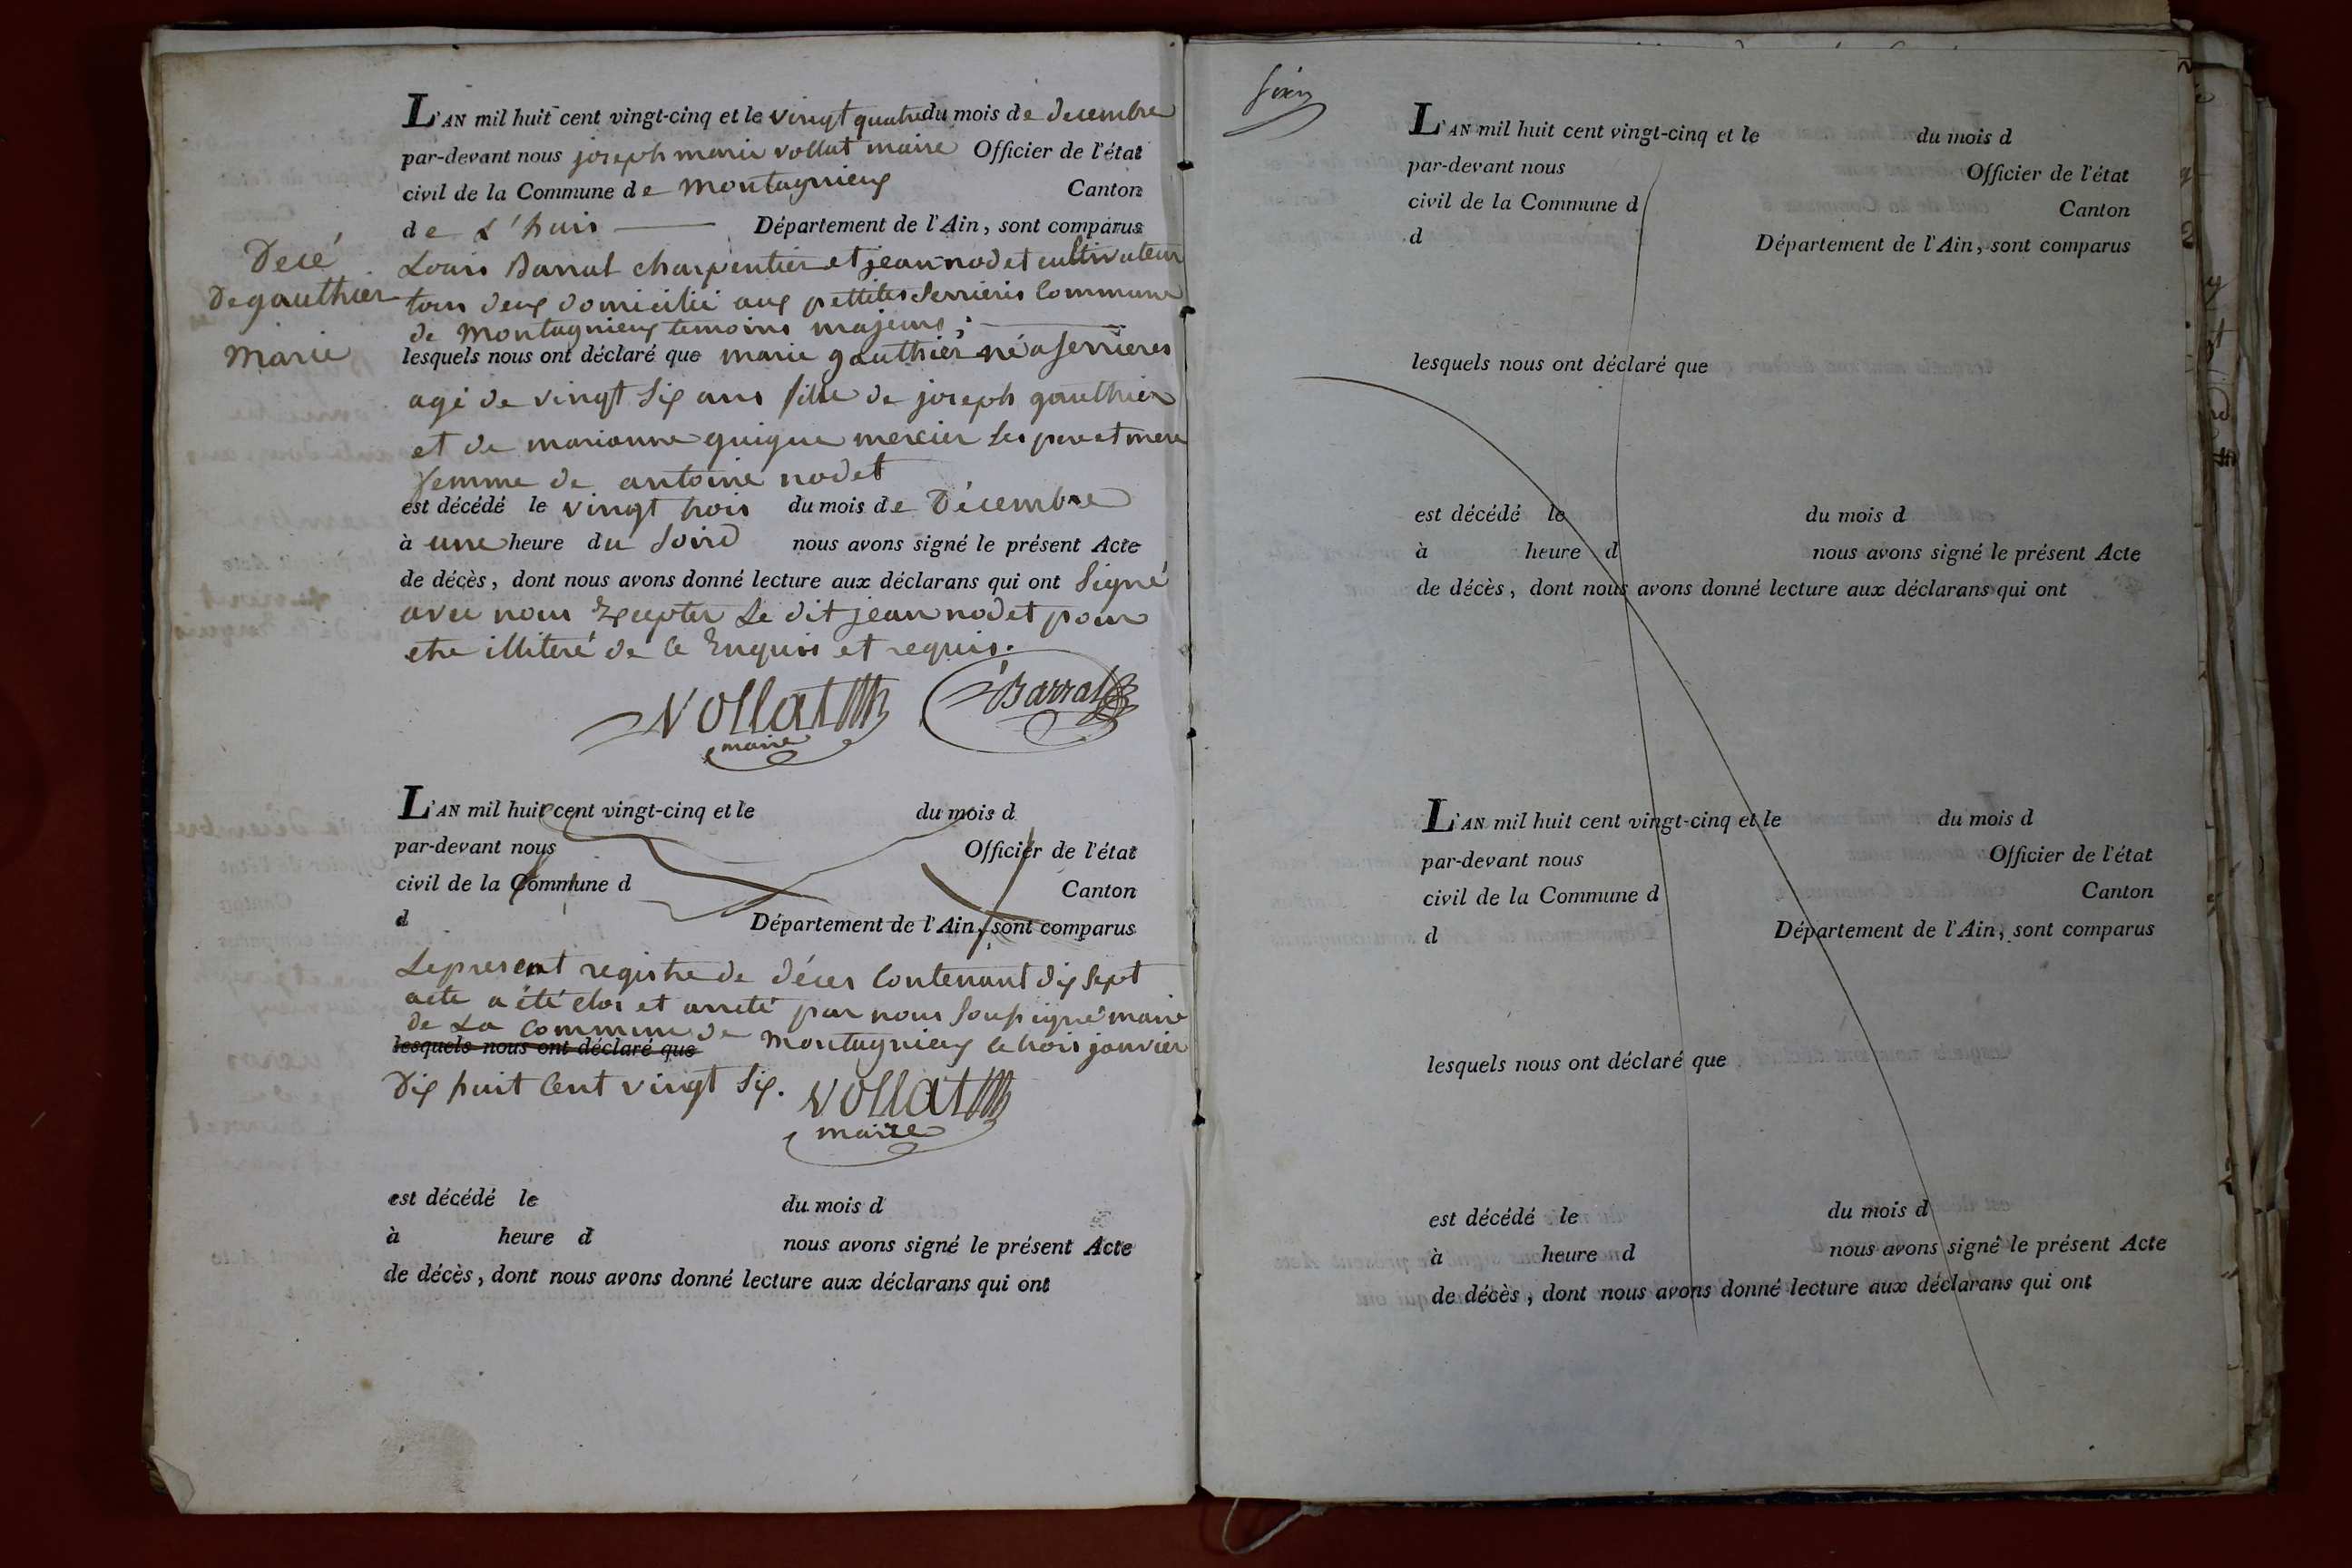 L'AN mil huit cent vingt-cinq et le vingt quatre du mois de decembre
par-devant nous joseph marie vollat maire Officier de l'état
civil de la Commune de montagnieux Canton
de L'huis Département de l'Ain, sont comparus
Decé
De gauthier
Marie
Louis Barral charpentier et jean nodet cultivateur
tous deux domicilié aux pettites Serrieres Commune
de Montagnieux temoins majeurs;
lesquels nous ont déclaré que marie gauthier né a Serrieres
agé de vingt six ans fille de joseph gauthier
et de marianne guigue mercier ses pere et mere
femme de antoine nodet
est décédé le vingt trois du mois de Décembre
à une heure du Soird nous avons signé le présent Acte
de décès, dont nous avons donné lecture aux déclarans qui ont Signé
avec nous Excepter Le dit jean nodet pour
etre illiteré de ce Enquis et requis.
Vollat
maire
Barral
L'AN mil huit cent vingt-cinq et le du mois d
par-devant nous Officier de l'état
civil de la Commune d Canton
d Département de l'Ain, sont comparus
Le present registre de déces Contenant dix Sept
acte a été clos et arreté par nous Soussigné maire
de La Commune de
lesquels nous ont déclaré que montagnieux le trois janvier
Dix huit Cent vingt Six. Vollat
maire
est décédé le du mois d
à heure d nous avons signé le présent Acte
de décès, dont nous avons donné lecture aux déclarans qui ont
L'AN mil huit cent vingt-cinq et le du mois d
par-devant nous Officier de l'état
civil de la Commune d Canton
d Département de l'Ain, sont comparus
lesquels nous ont déclaré que
est décédé le du mois d
à heure d nous avons signé le présent Acte
de décès, dont nous avons donné lecture aux déclarans qui ont
L'AN mil huit cent vingt-cinq et le du mois d
par-devant nous Officier de l'état
civil de la Commune d Canton
d Département de l'Ain, sont comparus
lesquels nous ont déclaré que
est décédé le du mois d
à heure d nous avons signé le présent Acte
de décès, dont nous avons donné lecture aux déclarans qui ont